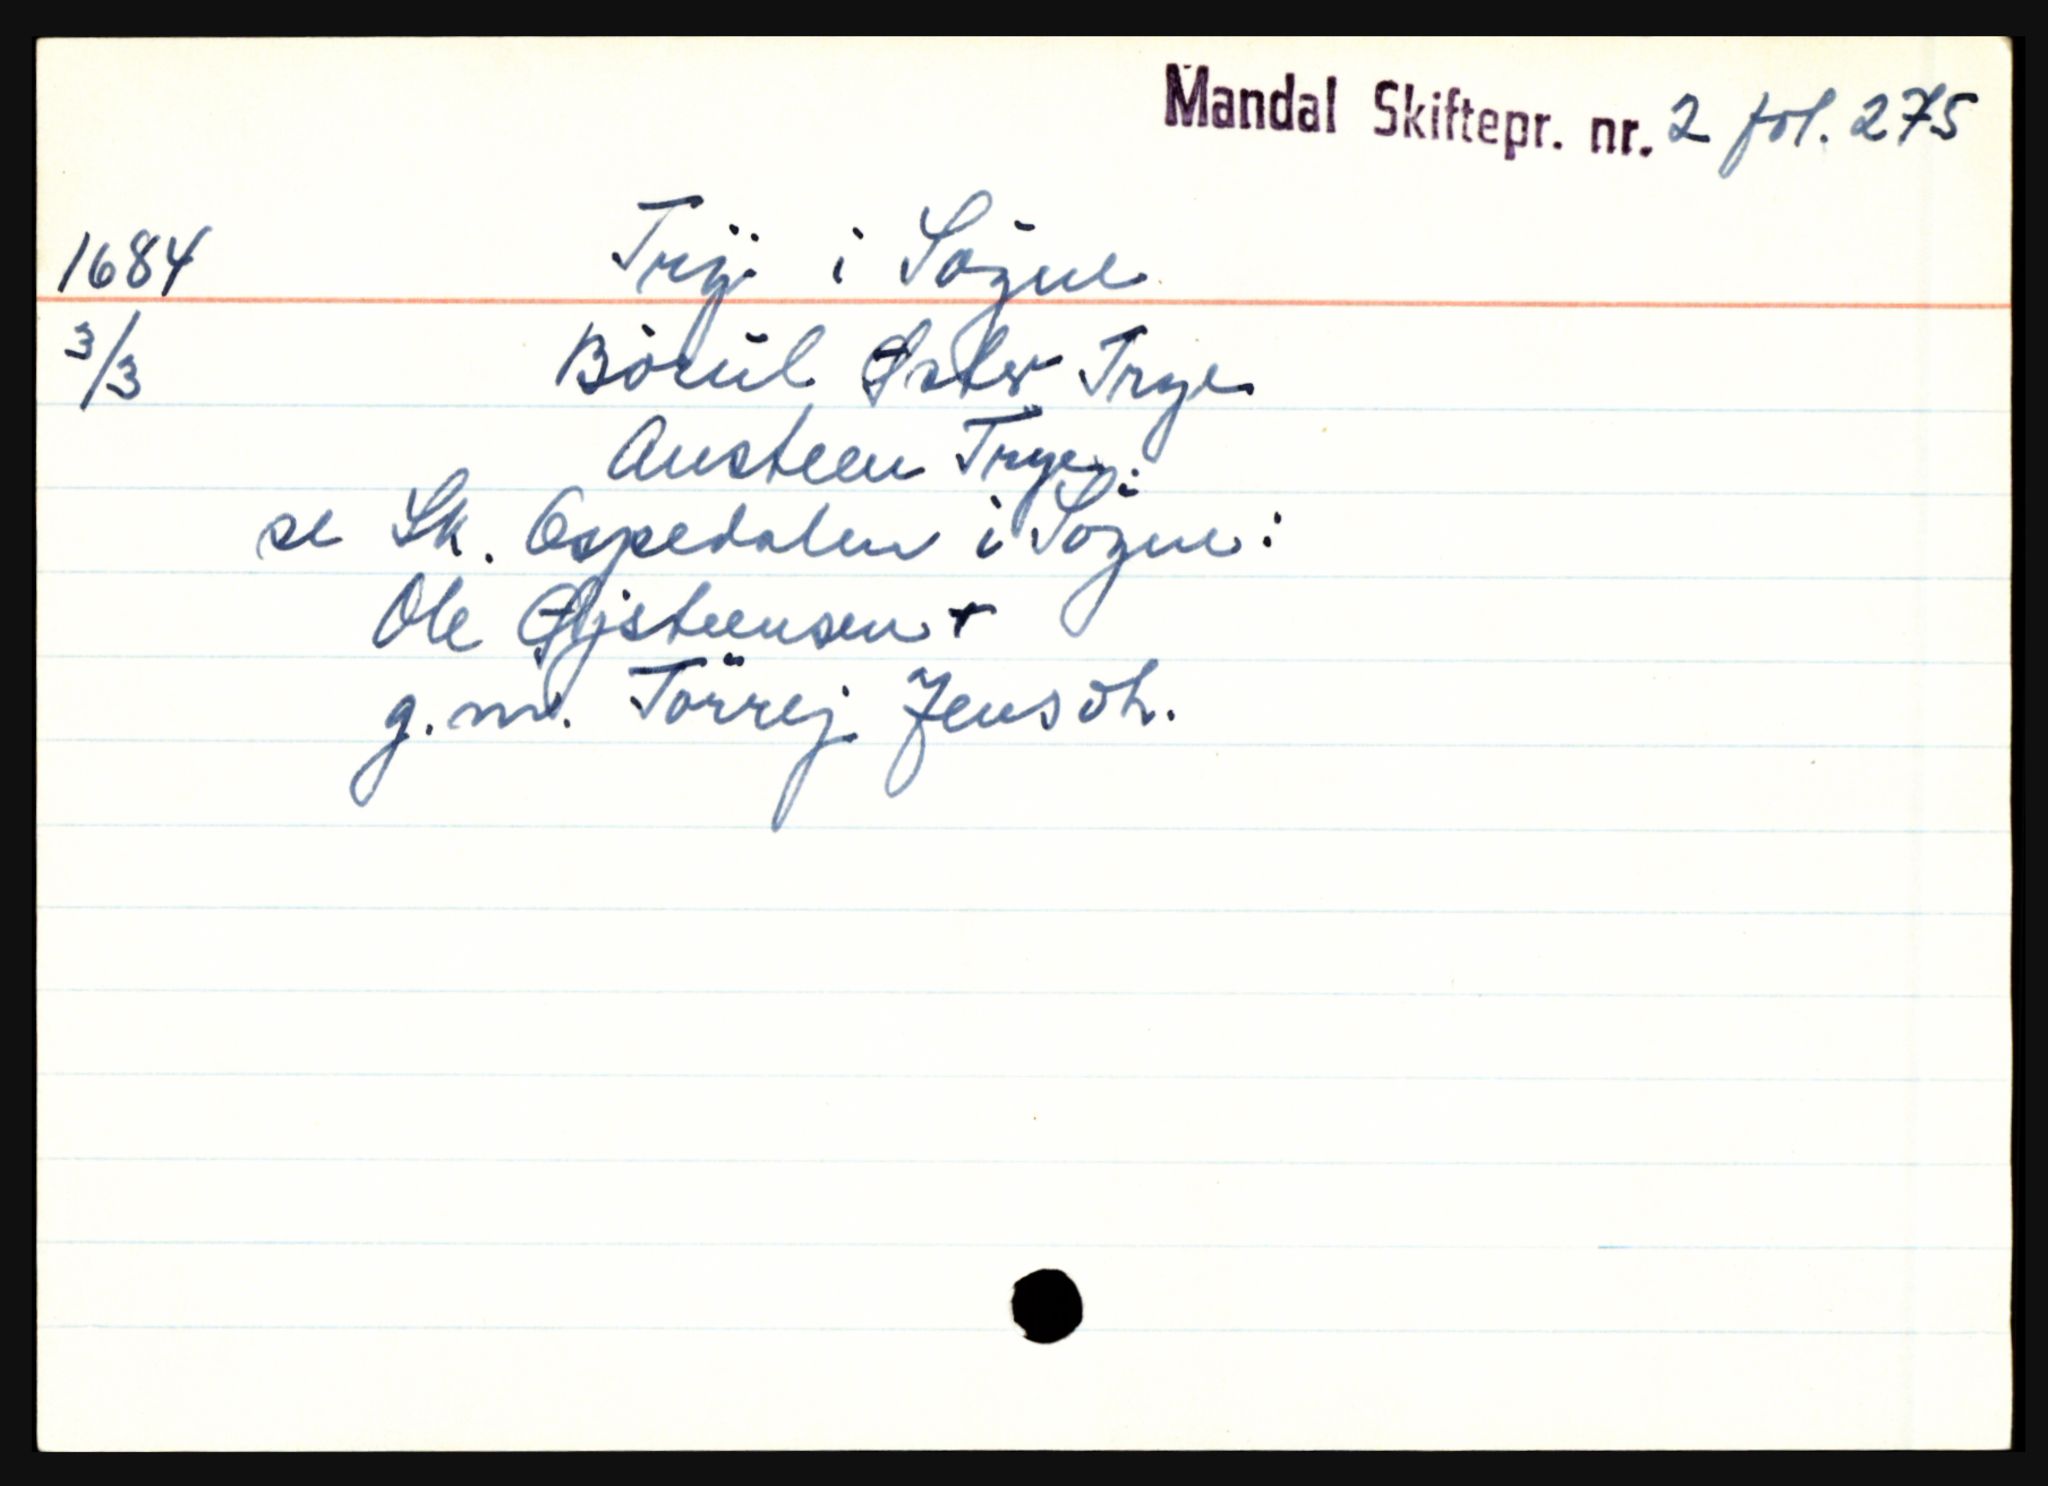 Mandal Skiftepr. nr. 2 fol. 275
1684 Trÿ i Søgne
3/3 Börül Øster Trye
Austeen Trye
se Sk. Ospedalen i Søgne:
Ole Øjsteensen +
g.m. Törrej Jensdtr.